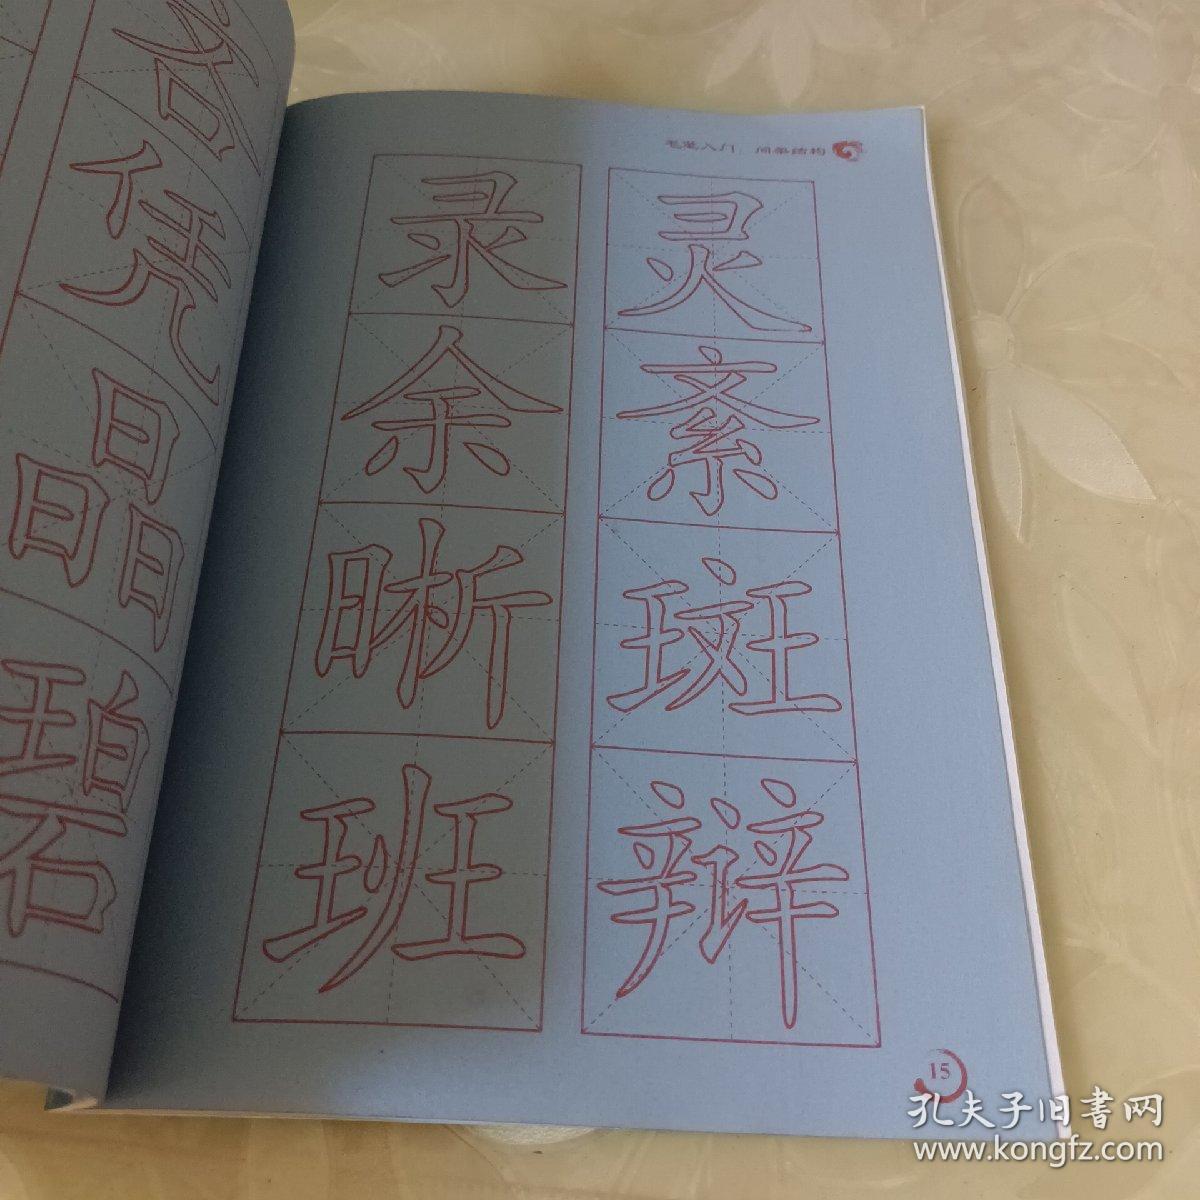 毛笔入门 间架结构
灵紊斑辩
录余晰班
各凭晶碧
15
孔夫子旧書网
www.kongfz.com